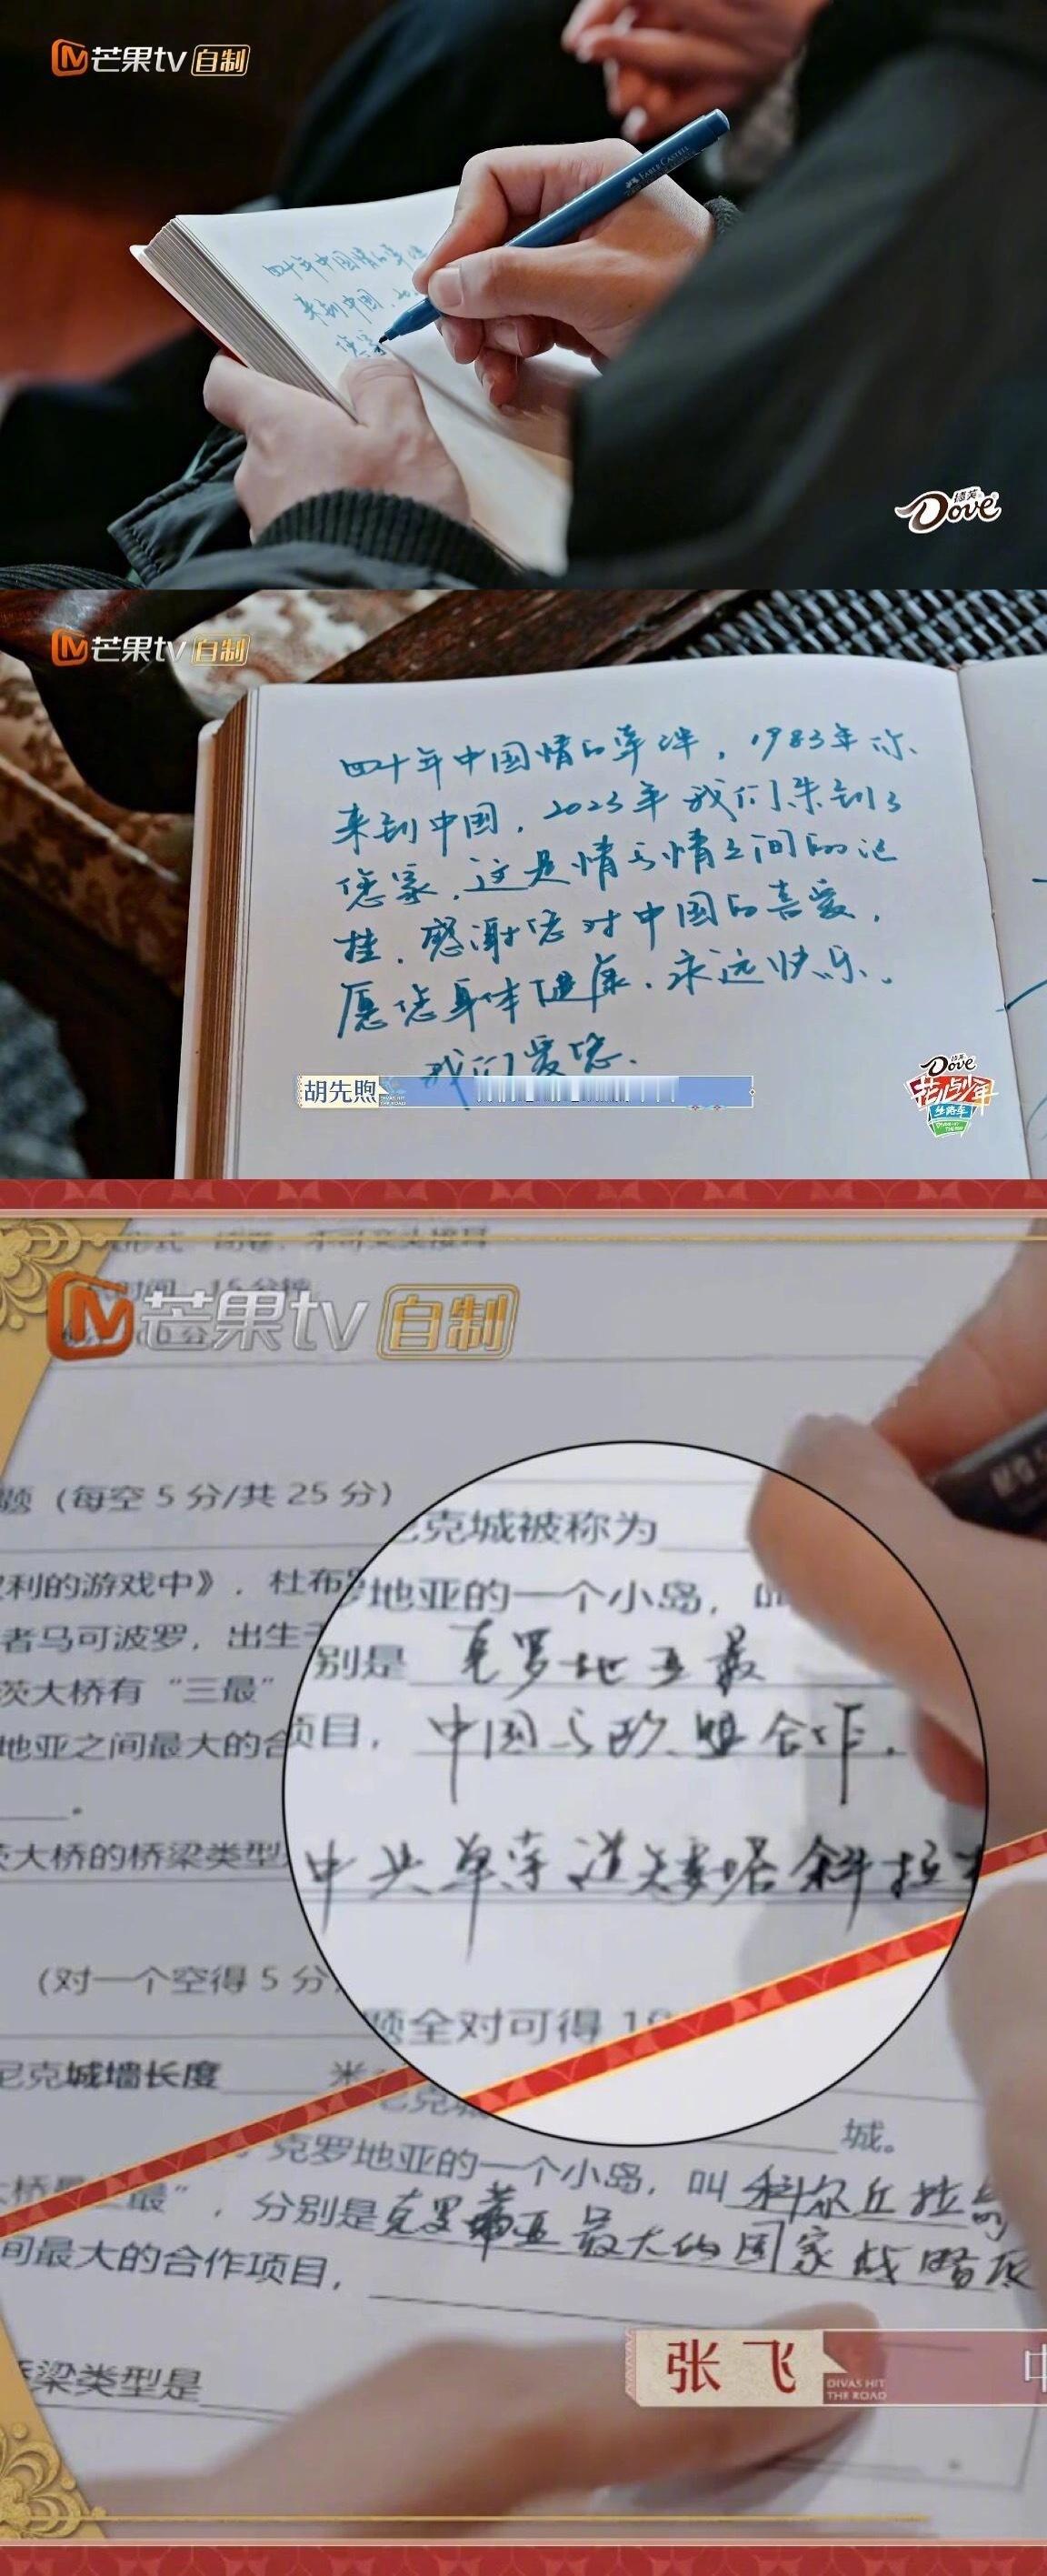 芒果tv 自制
FABER-CASTELL
四十年中国情的牵绊
来到中国,
您家
德芙
Dove
芒果tv 自制
四十年中国情的牵绊,1983年你
来到中国,2023年我们来到了
您家,这是情与情之间的记
挂,感谢您对中国的喜爱,
愿您身体健康,永远快乐。
我们爱您。
胡先煦
DIVAS HIT
THE ROAD
Dove
花儿与少年
丝路季
芒果tv 自制
时间 15分钟
题(每空5分/共25分)
克城被称为
权利的游戏中》,杜布罗
地亚的一个小岛,叫
者马可波罗,出生于
别是 克罗地亚最
茨大桥有“三最”
地亚之间最大的合项目, 中国与欧盟合作.
大桥的桥梁类型
中央单索道矮塔斜拉
(对一个空得5分
题全对可得10
尼克城墙长度 米
城。
克罗地亚的一个小岛,叫 科尔丘拉岛
大桥有“三最”,分别是 克罗地亚最大的国家战略
间最大的合作项目,
梁类型是
张飞
DIVAS HIT
THE ROAD
中